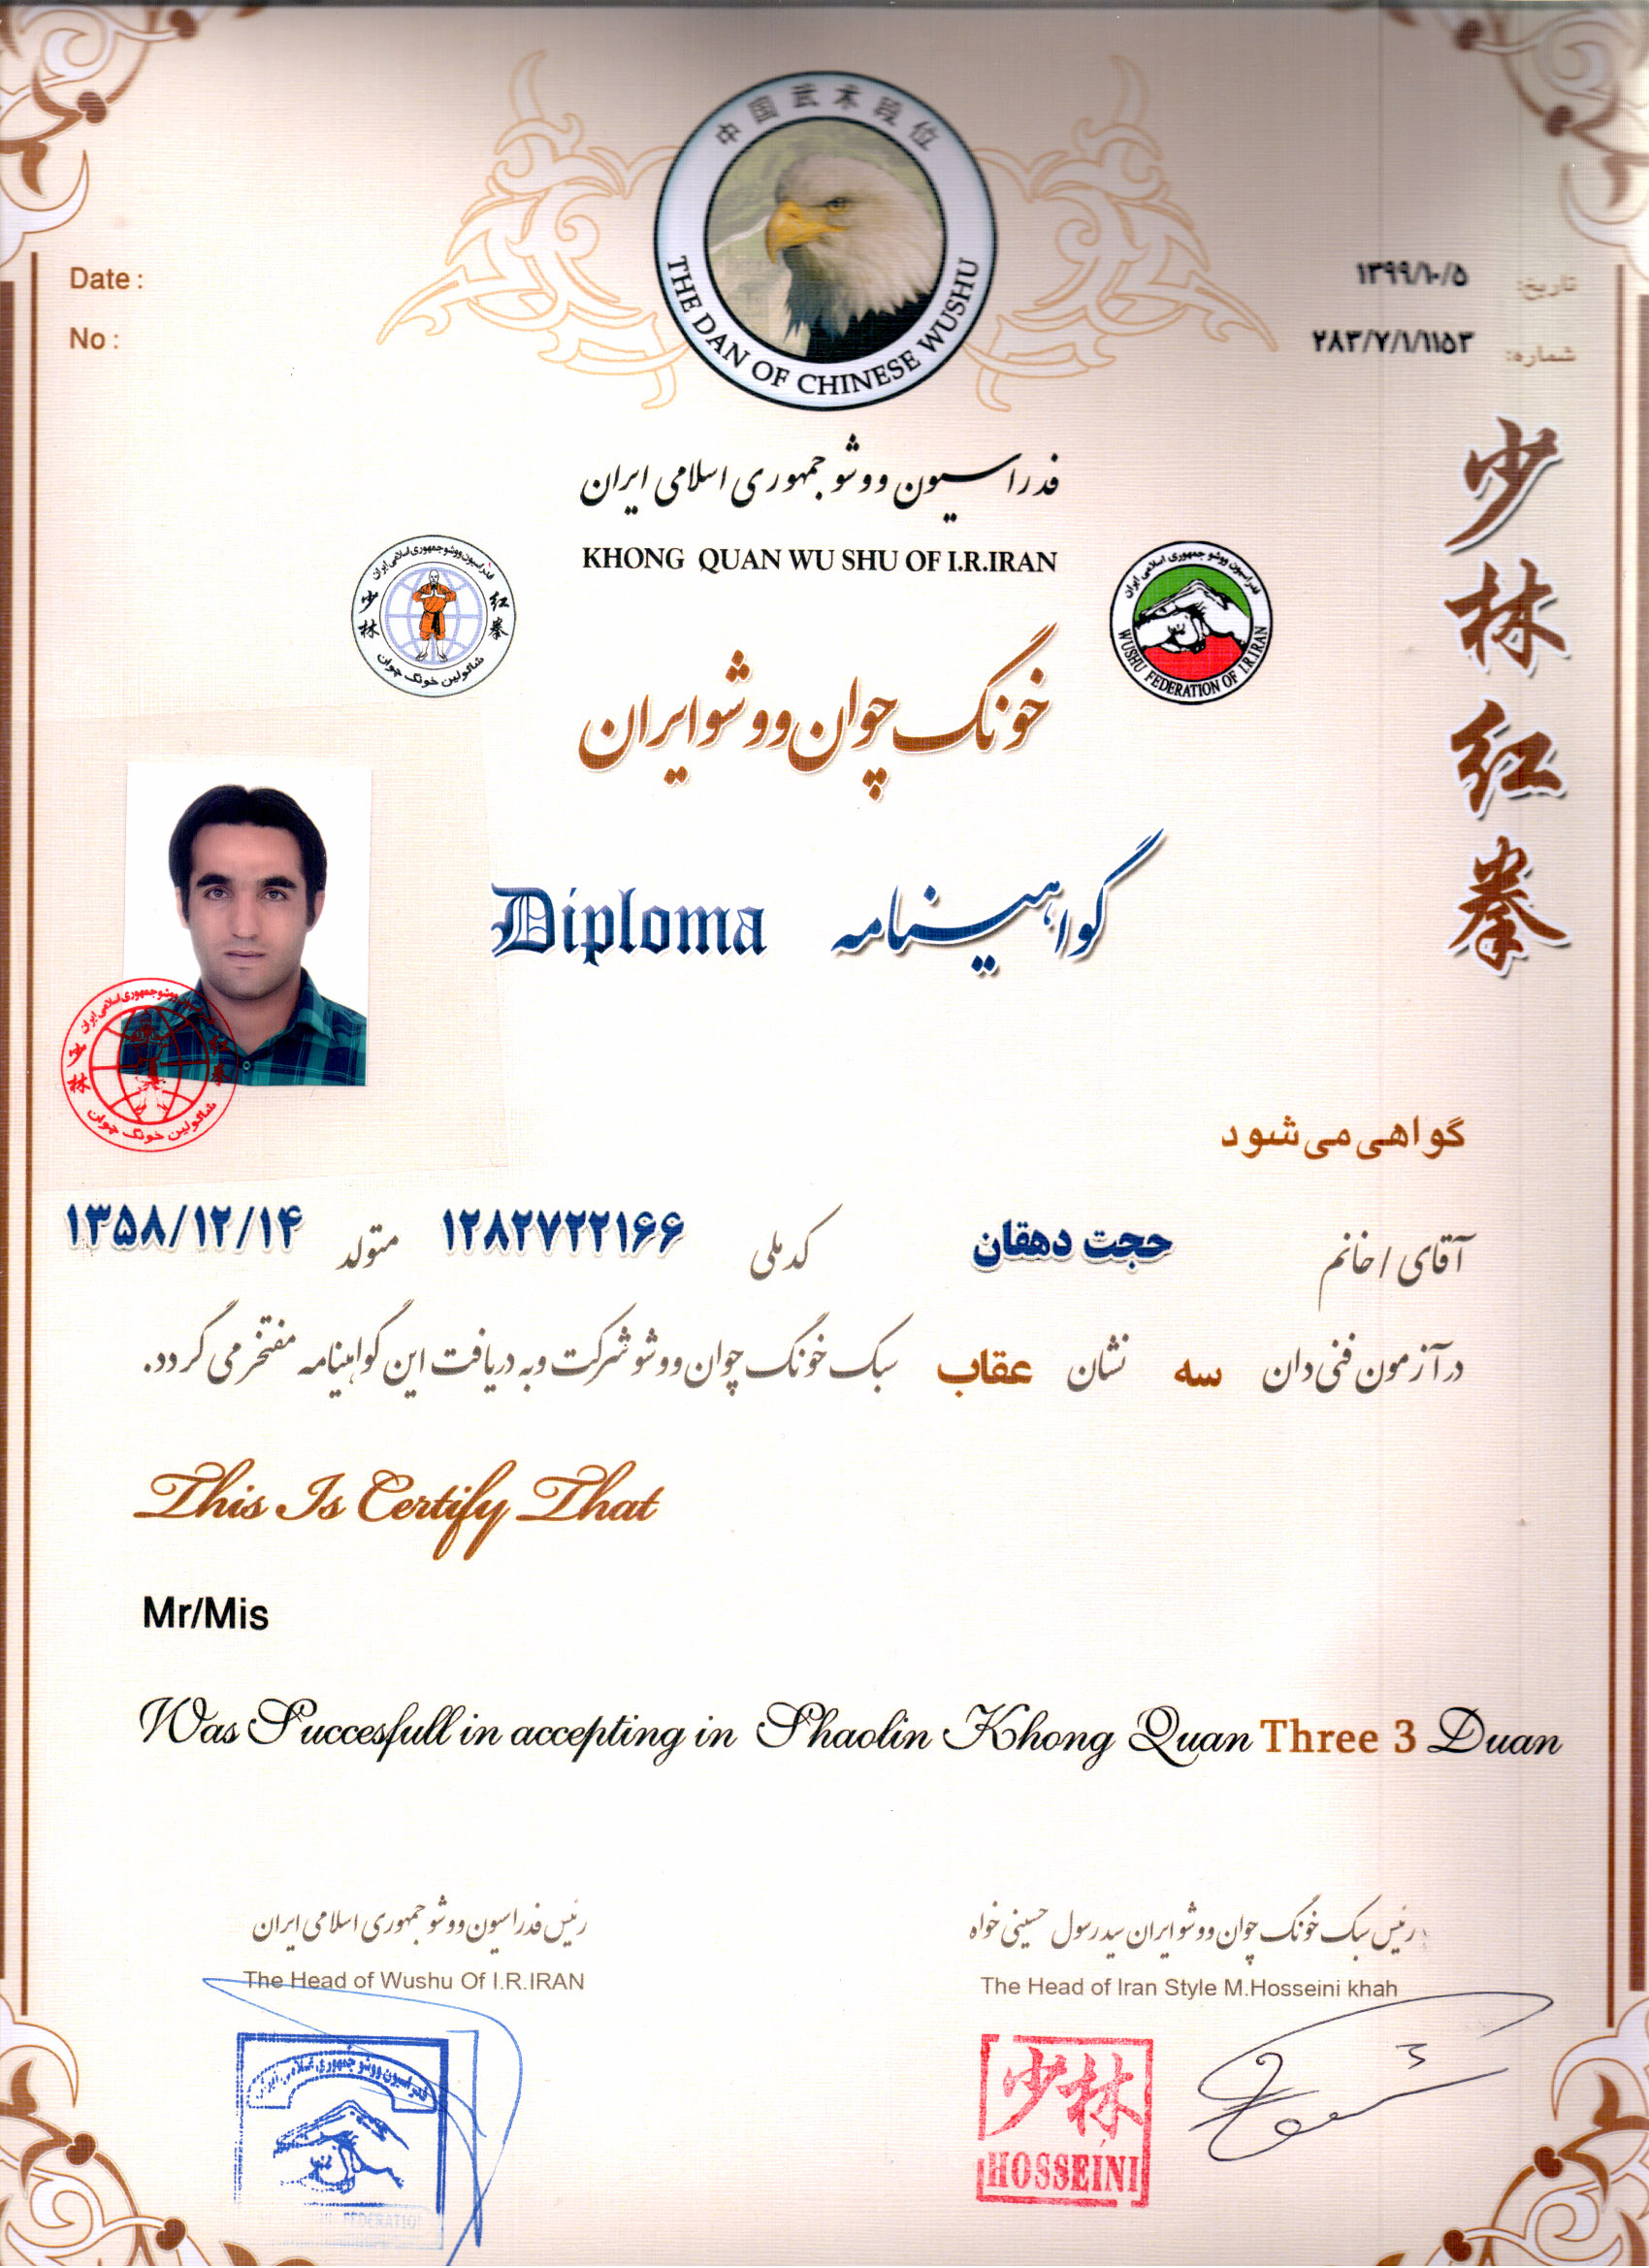 中国武术段位
THE DAN OF CHINESE WUSHU
Date :
No :
تاریخ: ۱۳۹۹/۱۰/۵
شماره: ۲۸۳/۷/۱/۱۱۵۳
少林红拳
فدراسیون ووشو جمهوری اسلامی ایران
KHONG QUAN WU SHU OF I.R.IRAN
فدراسیون ووشو جمهوری اسلامی ایران
少林 红拳
شائولین خونگ چوان
فدراسیون ووشو جمهوری اسلامی ایران
WUSHU FEDERATION OF I.R.IRAN
خونگ چوان ووشو ایران
گواهینامه Diploma
ووشو جمهوری اسلامی ایران
少林 红拳
شائولین خونگ چوان
گواهی می شود
آقای / خانم حجت دهقان کد ملی ۱۲۸۲۷۲۲۱۶۶ متولد ۱۳۵۸/۱۲/۱۴
در آزمون فنی دان سه نشان عقاب سبک خونگ چوان ووشو شرکت و به دریافت این گواهینامه مفتخر می گردد.
This Is Certify That
Mr/Mis
Was Succesfull in accepting in Shaolin Khong Quan Three 3 Duan
رئیس سبک خونگ چوان ووشو ایران سید رسول حسینی خواه
The Head of Iran Style M.Hosseini khah
رئیس فدراسیون ووشو جمهوری اسلامی ایران
The Head of Wushu Of I.R.IRAN
少林
HOSSEINI
فدراسیون ووشو جمهوری اسلامی ایران
FEDERATION